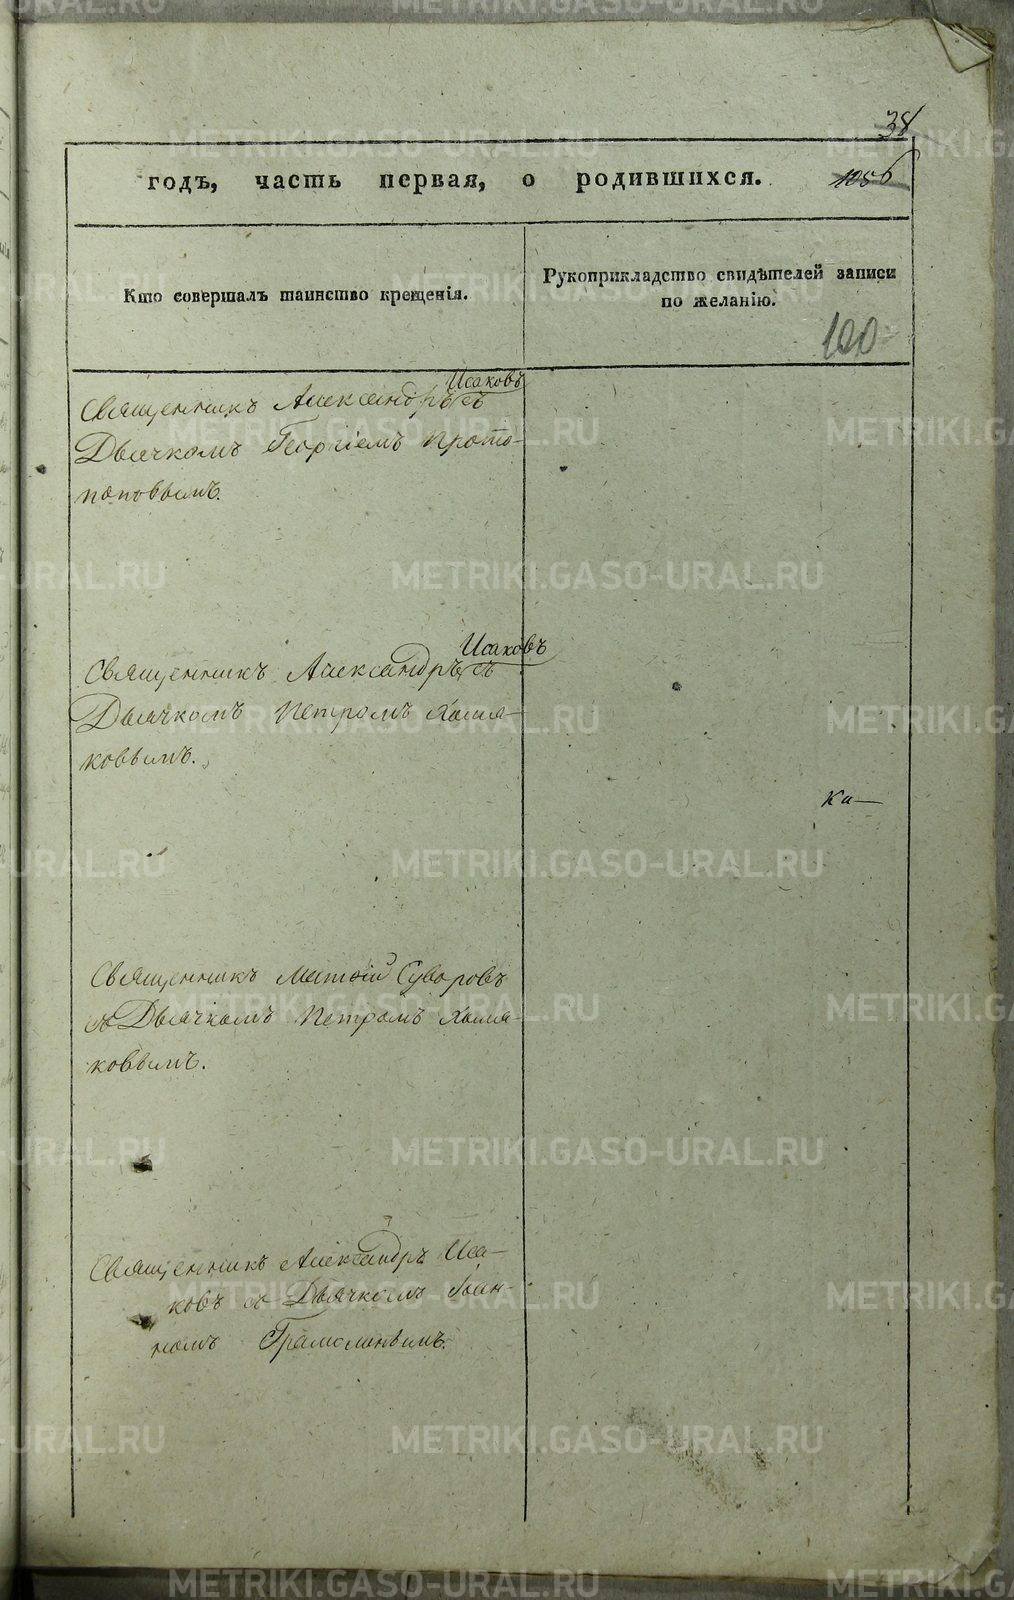 38
годъ, часть первая, о родившихся. 1056
Кто совершалъ таинство крещенія.
Рукоприкладство свидѣтелей записи
по желанію.
100
Исаковъ
Священникъ Александръ съ
Дьячкомъ Георгіемъ Прото-
поповымъ.
Исаковъ
Священникъ Александръ съ
Дьячкомъ Петромъ Хомя-
ковымъ.
Ка—
Священникъ Матѳій Суворовъ
съ Дьячкомъ Петромъ Хомя-
ковымъ.
Священникъ Александръ Иса-
ковъ съ Дьячкомъ Іоан-
номъ
METRIKI.GASO-URAL.RU